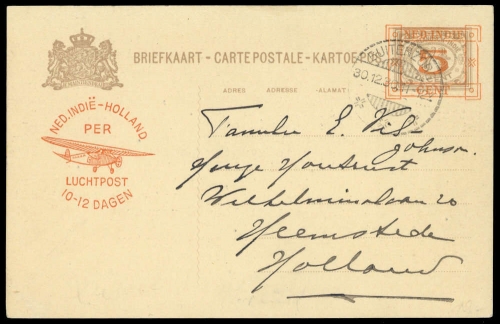 BRIEFKAART - CARTE POSTALE - KARTOE POS
ADRES ADRESSE -ALAMAT:
NED. INDIË
CENT
BUITENZORG
30.12.
NED. INDIË - HOLLAND
PER
LUCHTPOST
10-12 DAGEN
Familie E. Vis
Johnson.
Huize Houtrust
Wilhelminalaan 20
Heemstede
Holland